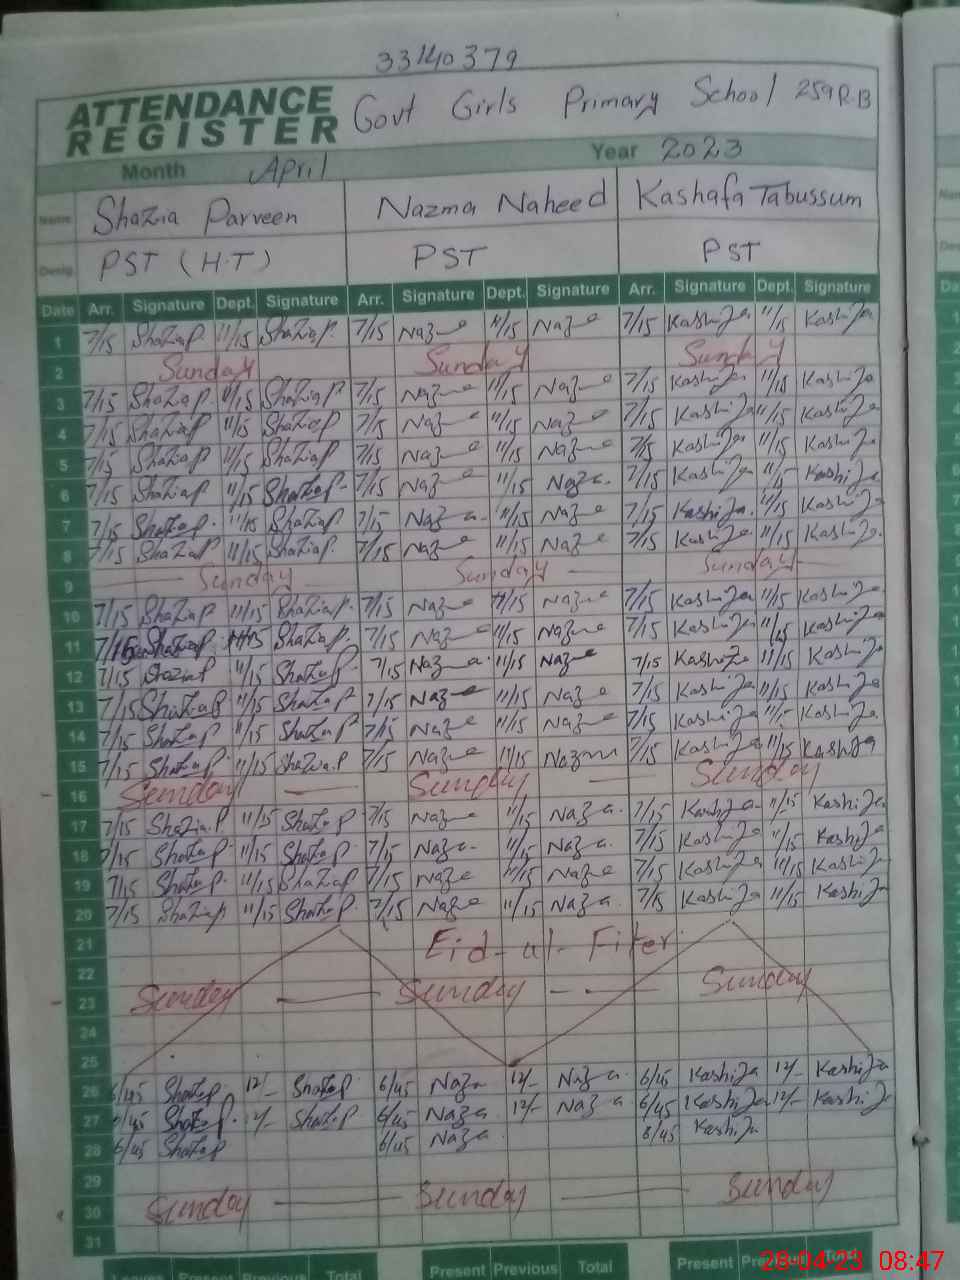 33140379
ATTENDANCE REGISTER Govt Girls Primary School 259 R.B
Month April Year 2023
Name Shazia Parveen Nazma Naheed Kashafa Tabussum
Desig. PST (H.T) PST PST
Date Arr. Signature Dept. Signature Arr. Signature Dept. Signature Arr. Signature Dept. Signature
1 7/15 ShaZiaP 11/15 ShaZiaP. 7/15 Naz 11/15 Naz 7/15 Kashija 11/15 Kashija
2 Sunday Sunday Sunday
3 7/15 ShaZiaP 11/15 ShaZiaP 7/15 Naz 11/15 Naz 7/15 Kashija 11/15 Kashija
4 7/15 ShaZiaP 11/15 ShaZiaP 7/15 Naz 11/15 Naz 7/15 Kashija 11/15 Kashija
5 7/15 ShaZiaP 11/15 ShaZiaP 7/15 Naz 11/15 Naz 7/15 Kashija 11/15 Kashija
6 7/15 ShaZiaP 11/15 ShaZiaP 7/15 Naz 11/15 Naza. 7/15 Kashija 11/15 Kashija
7 7/15 ShaZiaP. 11/15 ShaZiaP 7/15 Naza. 11/15 Naz 7/15 Kashija. 11/15 Kashija
8 7/15 ShaZiaP 11/15 ShaZiaP. 7/15 Naz 11/15 Naz 7/15 Kashija 11/15 Kashija.
9 Sunday Sunday Sunday
10 7/15 ShaZiaP 11/15 ShaZiaP. 7/15 Naz 11/15 Naz 7/15 Kashija 11/15 Kashija
11 7/15 ShaZiaP 11/15 ShaZiaP. 7/15 Naz 11/15 Naz 7/15 Kashija 11/15 Kashija
12 7/15 11/15 ShaZiaP 7/15 Naza. 11/15 Naz 7/15 Kashija 11/15 Kashija
13 7/15 ShaZiaP 11/15 ShaZiaP 7/15 Naz 11/15 Naz 7/15 Kashija 11/15 Kashija
14 7/15 ShaZiaP 11/15 ShaZiaP 7/15 Naz 11/15 Naz 7/15 Kashija 11/15 Kashija
15 7/15 ShaZiaP. 11/15 ShaZia.P 7/15 Naz 11/15 7/15 Kashija 11/15 Kashija
16 Sunday Sunday Sunday
17 7/15 ShaZia.P. 11/15 ShaZiaP 7/15 Naz 11/15 Naza. 7/15 Kashija 11/15 Kashija
18 7/15 ShaZiaP 11/15 ShaZiaP. 7/15 Naza. 11/15 Naza. 7/15 Kashija 11/15 Kashija
19 7/15 ShaZiaP. 11/15 ShaZiaP 7/15 Naz 11/15 Naz 7/15 Kashija 11/15 Kashija
20 7/15 ShaZiaP 11/15 ShaZiaP. 7/15 Naz 11/15 Naza. Kashija 11/15 Kashija
21 Eid-ul-Fiter
22
23 Sunday Sunday Sunday
24
25
26 6/45 ShaZiaP. 12/- ShaZiaP. 6/45 Naza 12/- Naza. 6/45 Kashija 12/- Kashija
27 6/45 ShaZiaP. 12/- ShaZiaP 6/45 Naza 12/- Naza 6/45 Kashija 12/- Kashija
28 6/45 ShaZiaP 6/45 Naza 6/45 Kashija
29
30 Sunday Sunday Sunday
31
Leaves Present Previous Total Present Previous Total Present Previous Total
28-04-23 08:47